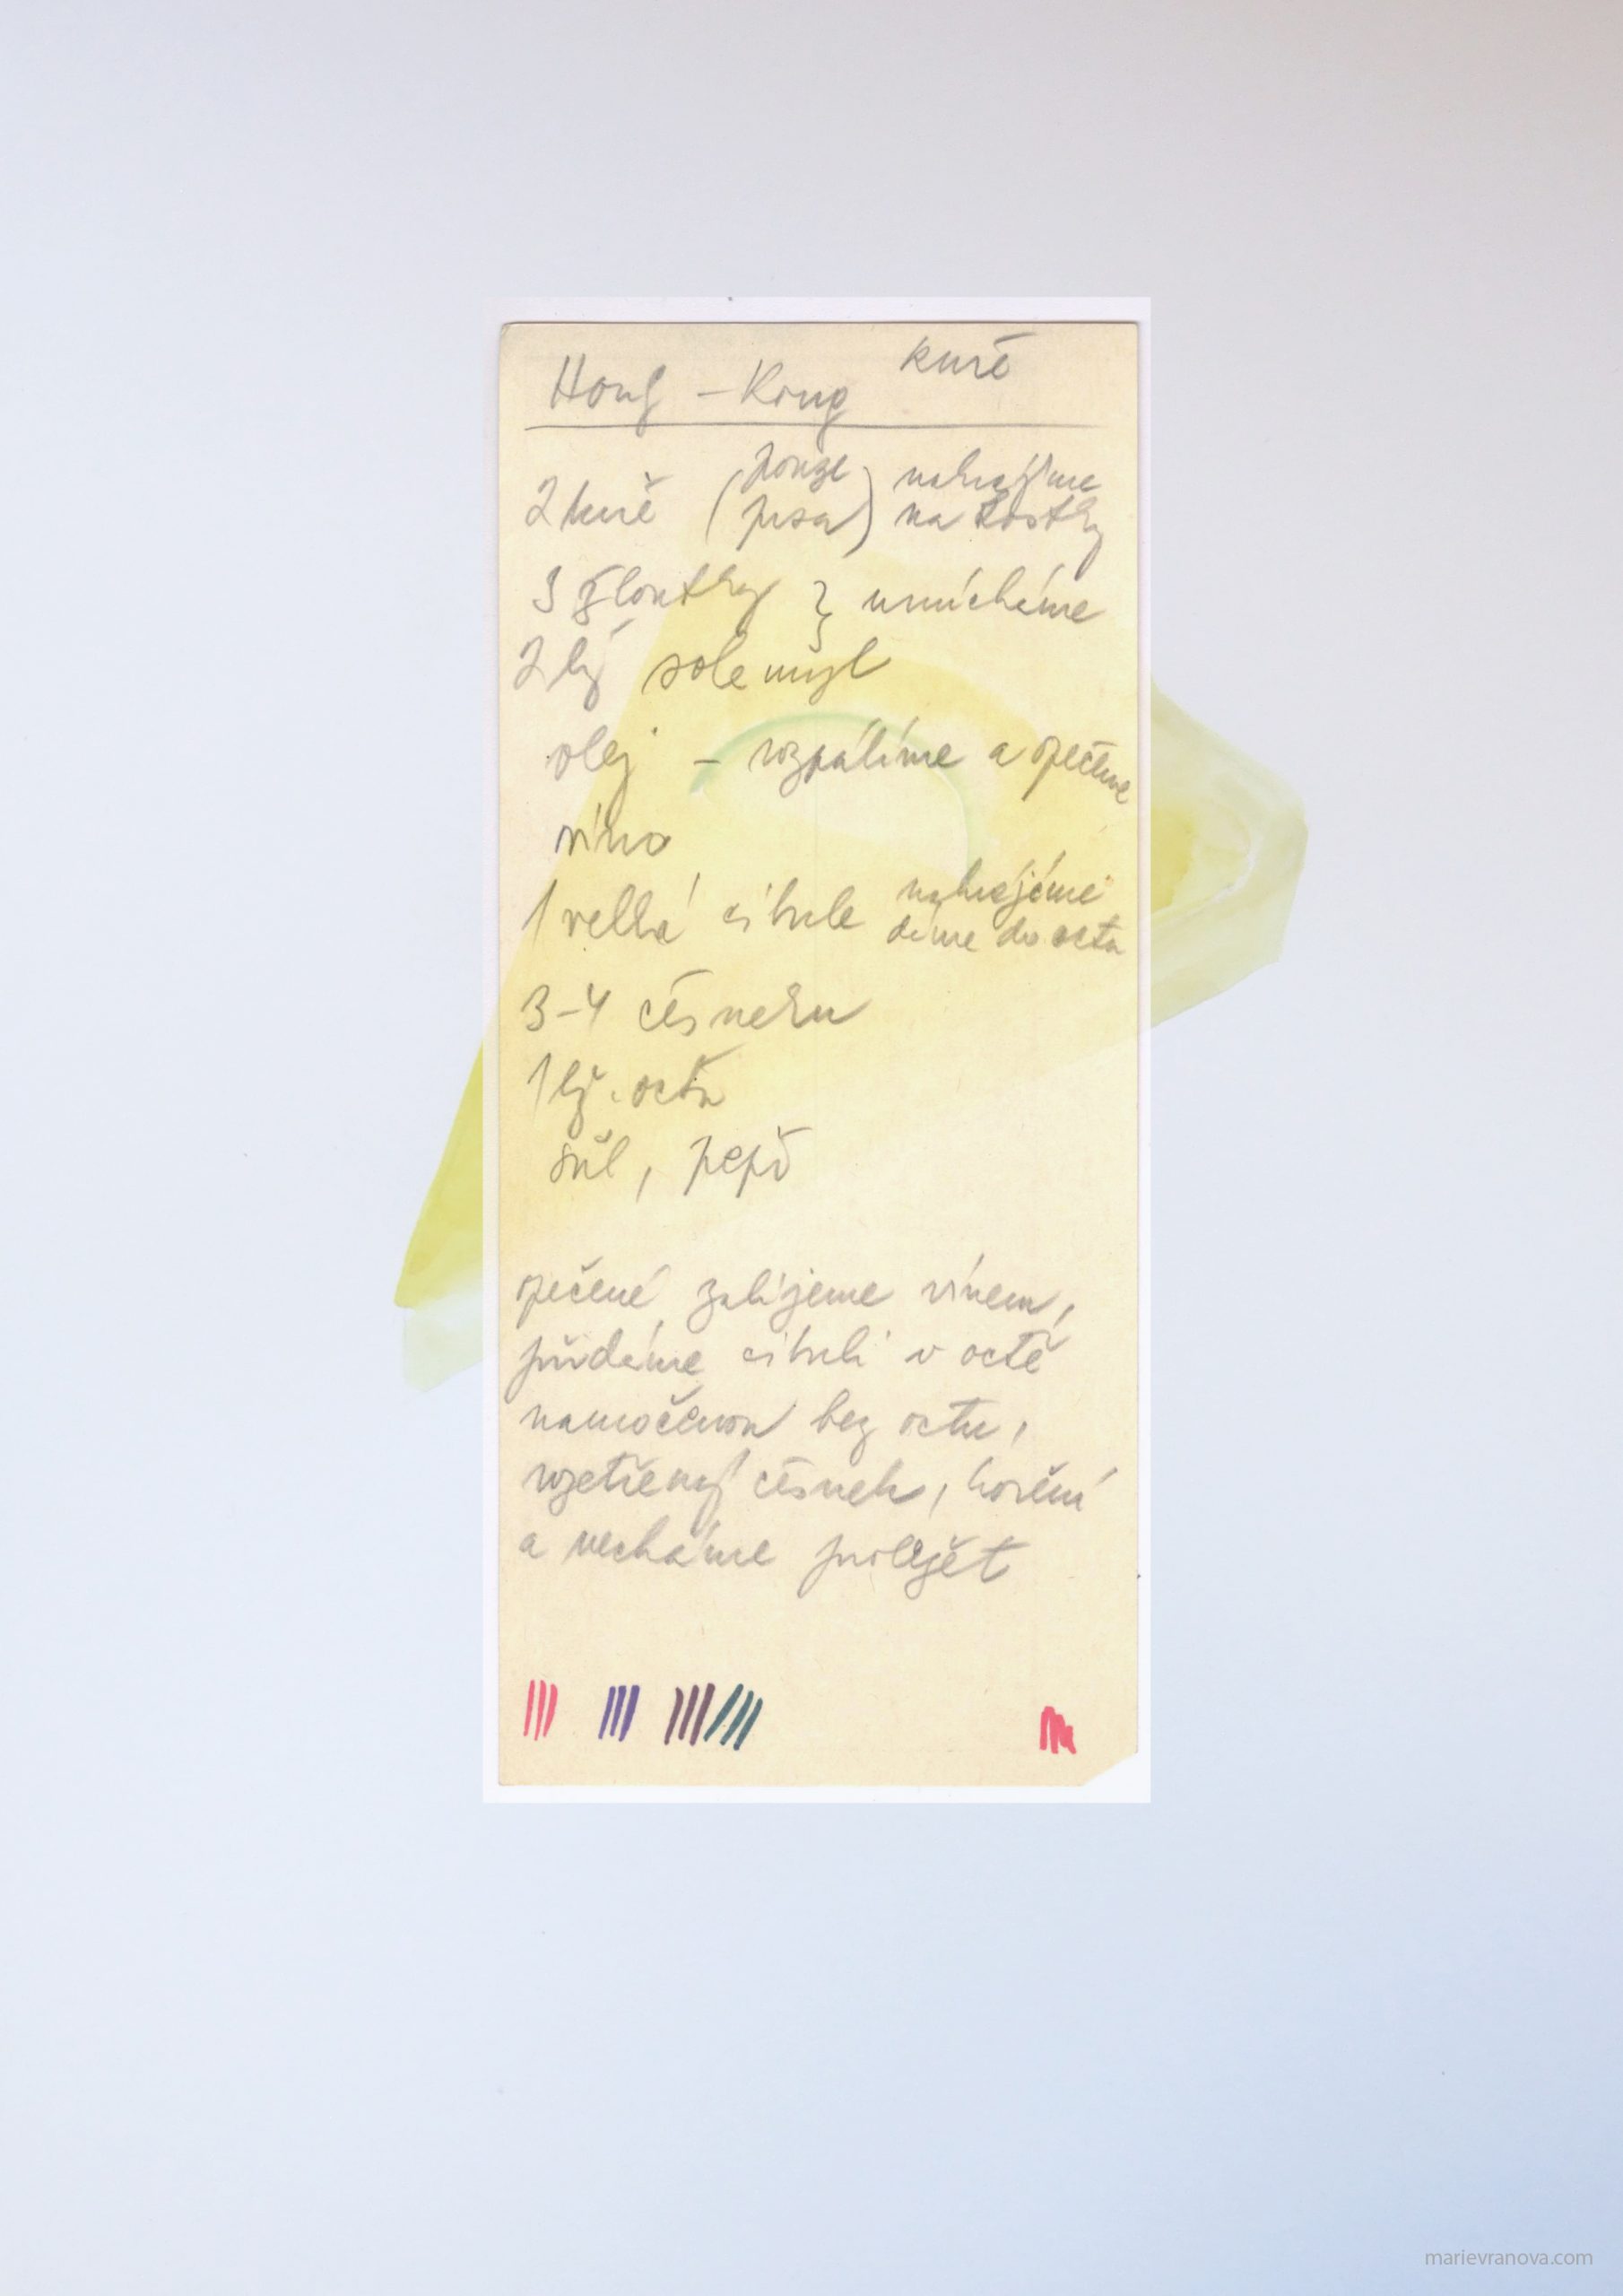 Hong - Kong kuře
2 kuře (pouze prsa) nakrájíme na kostky
3 žloutky } umícháme
2 lž solamyl
olej - rozpálíme a opečeme
víno
1 velká cibule nakrájíme dáme do octa
3-4 česneku
1 lž. octa
sůl, pepř
opečené zalijeme vínem,
přidáme cibuli v octě
namočenou bez octu,
rozetřený česnek, koření
a necháme proležět
marievranova.com